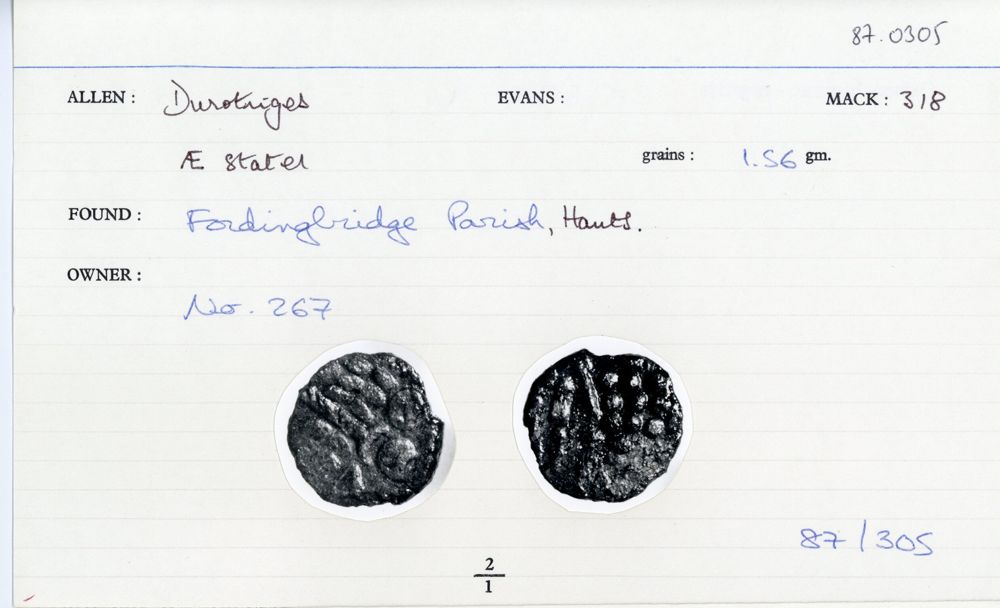 87.0305
ALLEN: Durotriges EVANS: MACK: 318
Æ Stater grains: 1.56 gm.
FOUND: Fordingbridge Parish, Hants.
OWNER:
No. 267
87/305
2
1